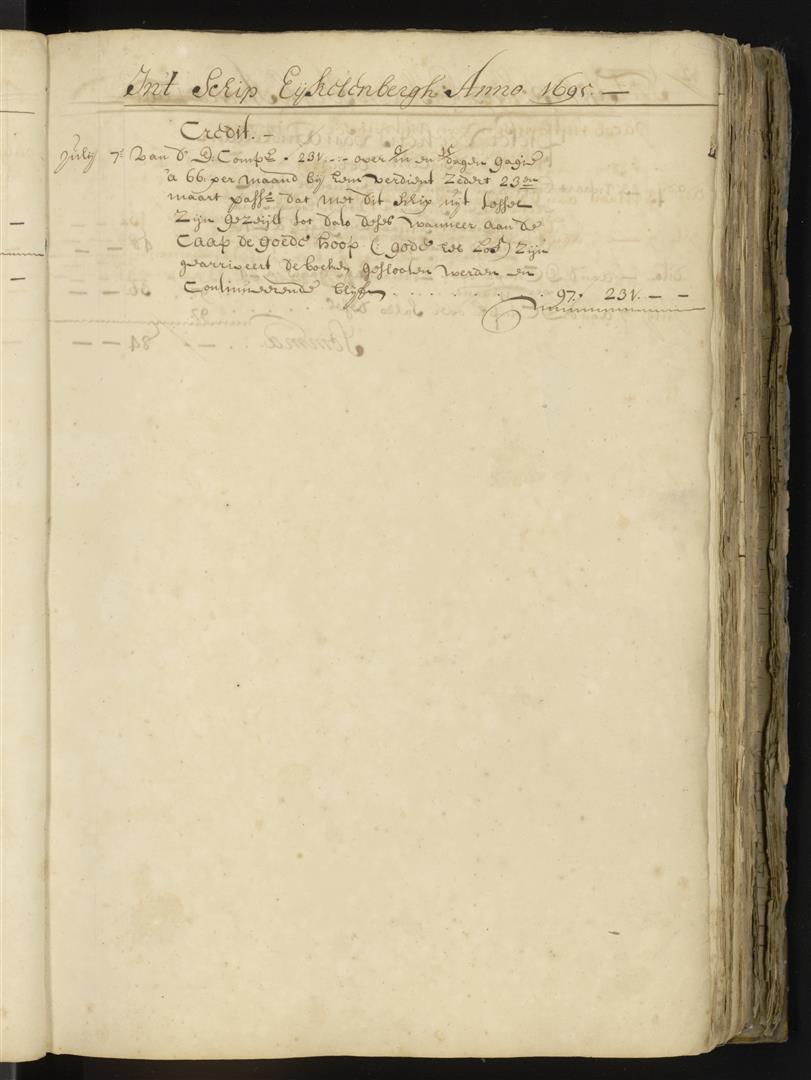 Int Schip Eijkelenbergh Anno 1695. —
Credit. —
July 7e van d' E: Comp:e . 231.-:- over en 15 dagen gagie
a 66. per maand bij hem verdient zedert 23en
maart pass:o dat met dit schip uijt tessel
zijn gezeijlt tot dato deses wanneer aan de
Caap de goede hoop (: gode zes lof) zijn
gearriveert de boeken geslooten werden en
Continueerende blijft . . . . . . . 97. 231. — —